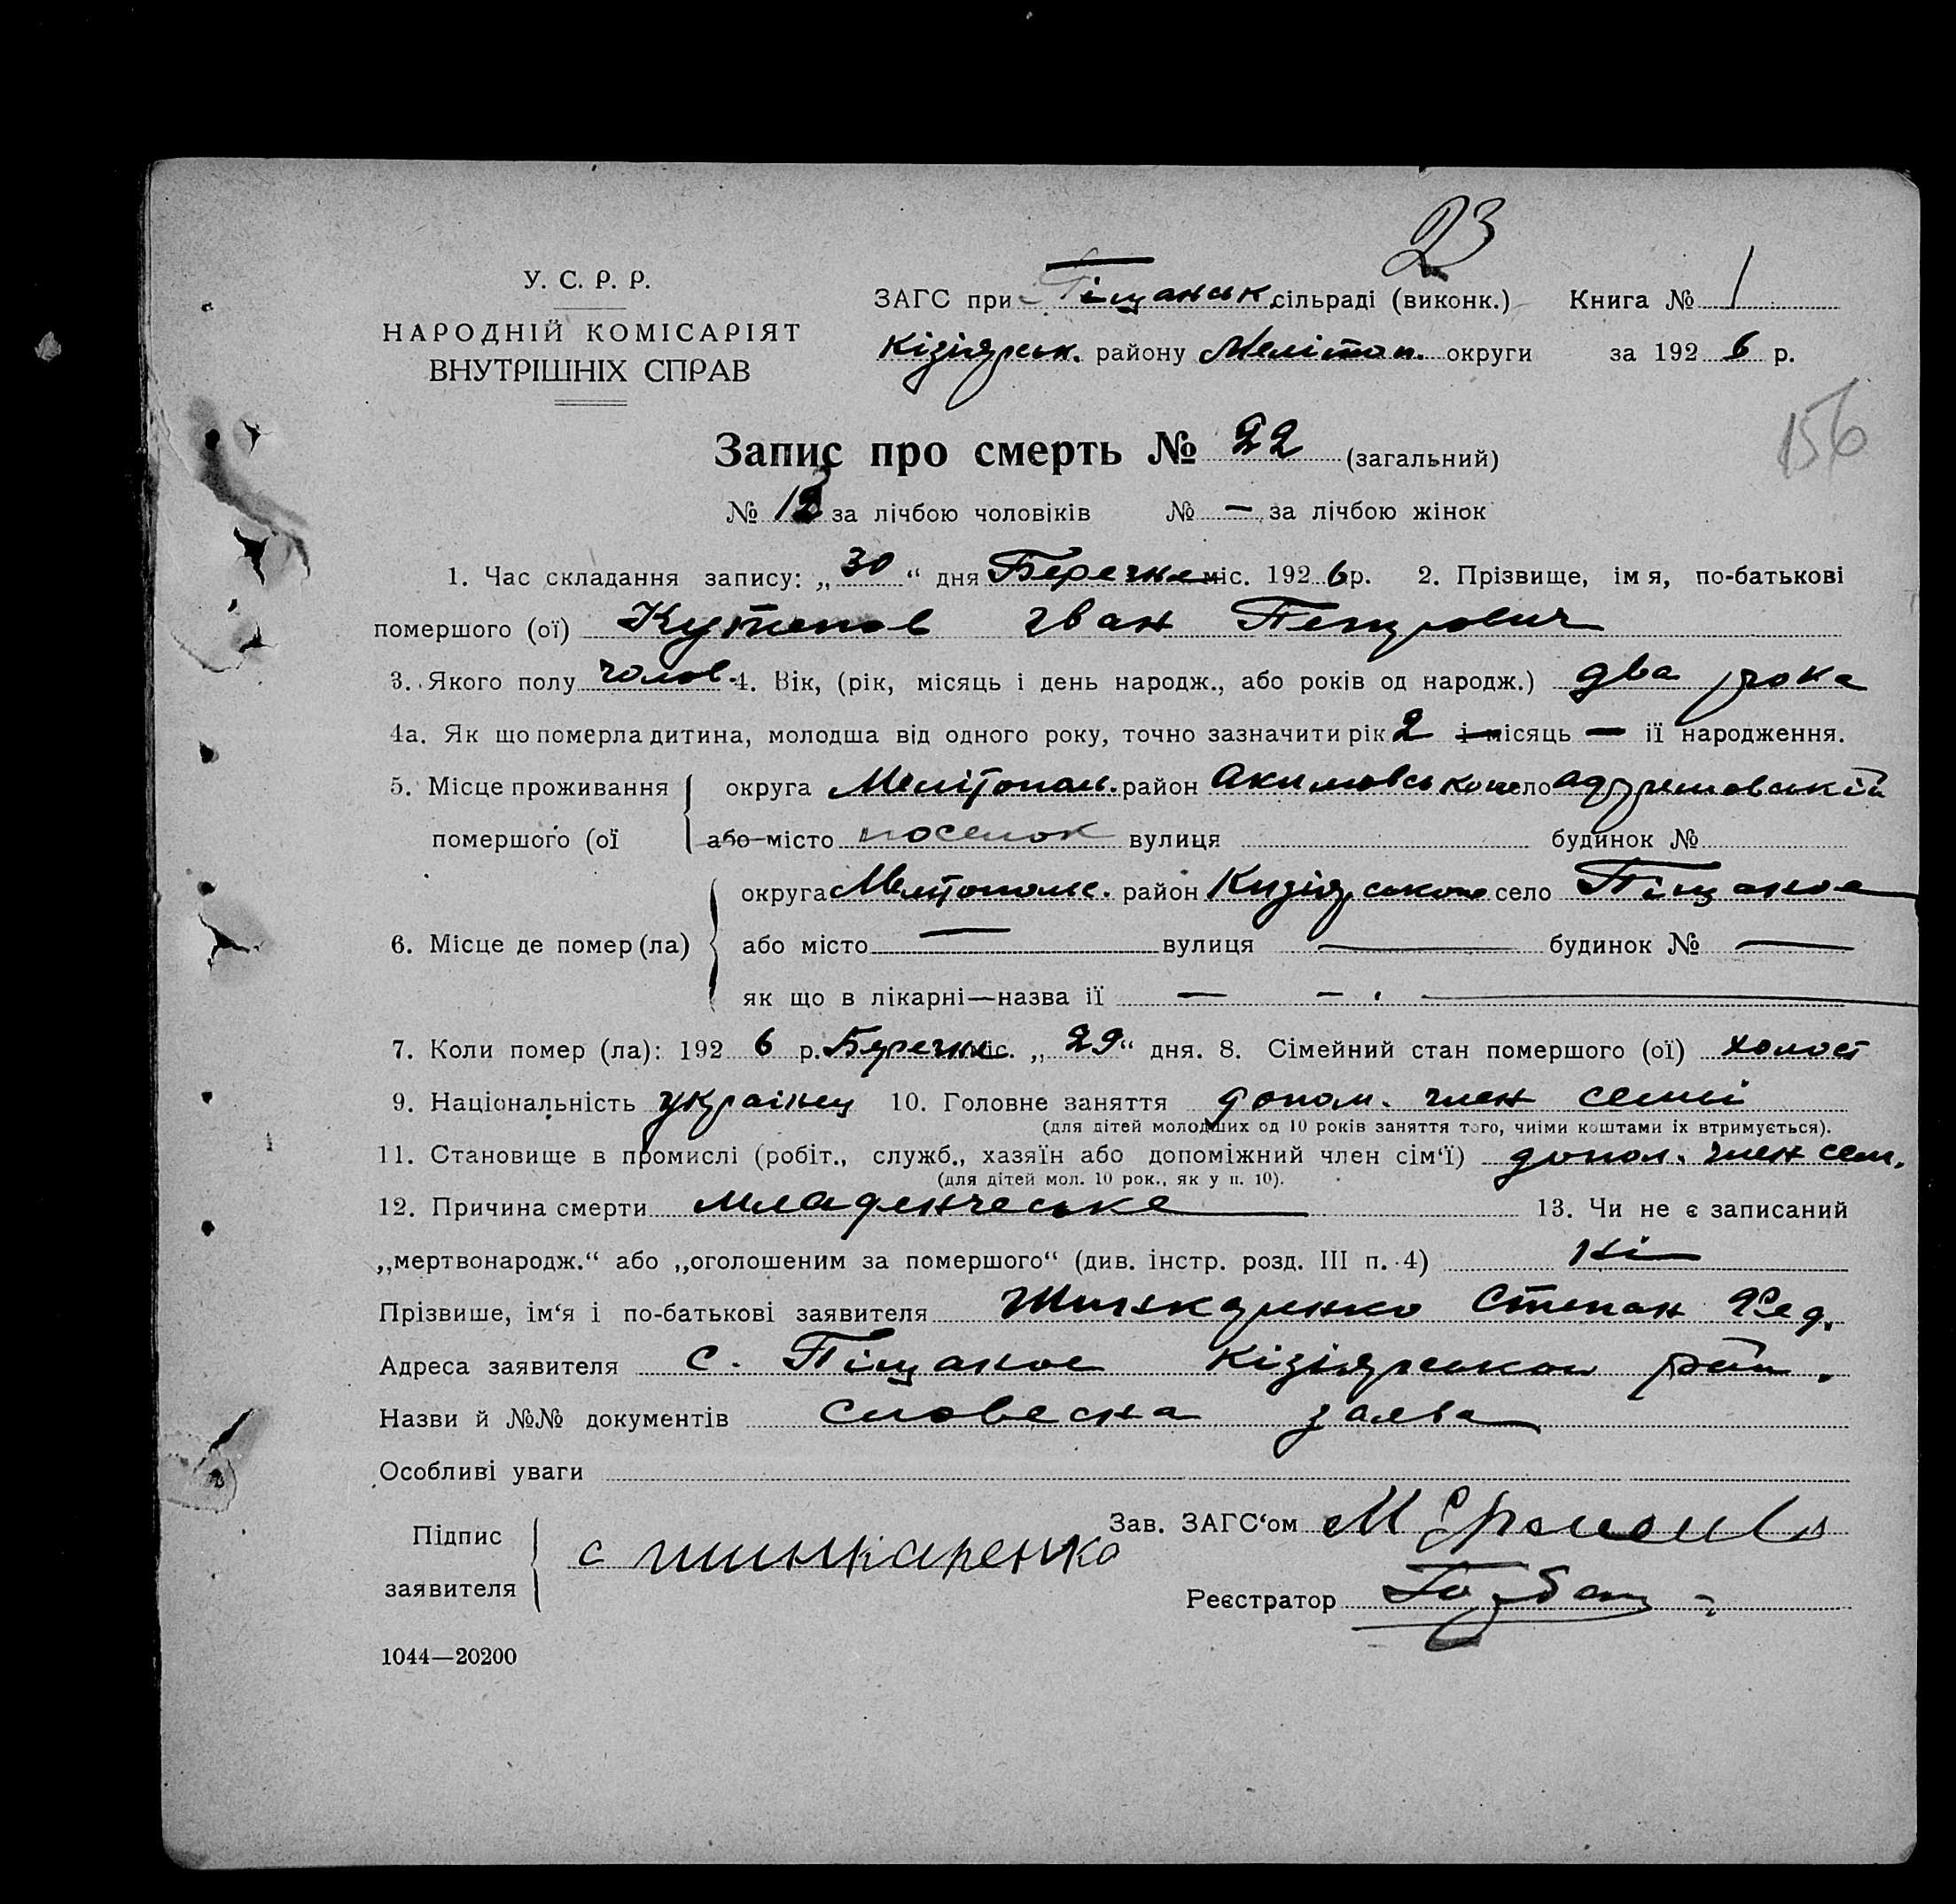 23
У. С. Р. Р.
НАРОДНІЙ КОМІСАРІЯТ
ВНУТРІШНІХ СПРАВ
ЗАГС при Піщанськ. сільраді (виконк.) Книга № 1
Кізіярськ. району Мелітоп. округи за 192 6 р.
156
Запис про смерть № 22 (загальний)
№ 13 за лічбою чоловіків № — за лічбою жінок
1. Час складання запису: „ 30 “ дня Березня міс. 192 6 р. 2. Прізвище, імя, по-батькові
помершого (ої) Кутепов Іван Петрович
3. Якого полу чолов. 4. Вік, (рік, місяць і день народж., або років од народж.) два рока
4а. Як що померла дитина, молодша від одного року, точно зазначити рік 2 і місяць — ії народження.
5. Місце проживання округа Мелітополь. район Акимовського село
помершого (ої або місто поселок вулиця будинок №
округа Мелітопольс. район Кизіярського село Піщаное
6. Місце де помер (ла) або місто — вулиця — будинок № —
як що в лікарні—назва ії — — .
7. Коли помер (ла): 192 6 р. Березня міс. „ 29 “ дня. 8. Сімейний стан помершого (ої) холост
9. Національність українец 10. Головне заняття допом. член семьі
(для дітей молодших од 10 років заняття того, чиїми коштами їх втримується).
11. Становище в промислі (робіт., служб., хазяїн або допоміжний член сім‘ї) допол. член сем.
(для дітей мол. 10 рок., як у п. 10).
12. Причина смерти младенческе 13. Чи не є записаний
„мертвонародж.“ або „оголошеним за помершого“ (див. інстр. розд. III п. 4) ні
Прізвише, ім‘я і по-батькові заявителя Степан Фед.
Адреса заявителя с. Піщаное Кізіярского рай.
Назви й №№ документів словесна заява
Особливі уваги
Підпис
заявителя с шинкаренко
Зав. ЗАГС‘ом М
Реєстратор
1044—20200